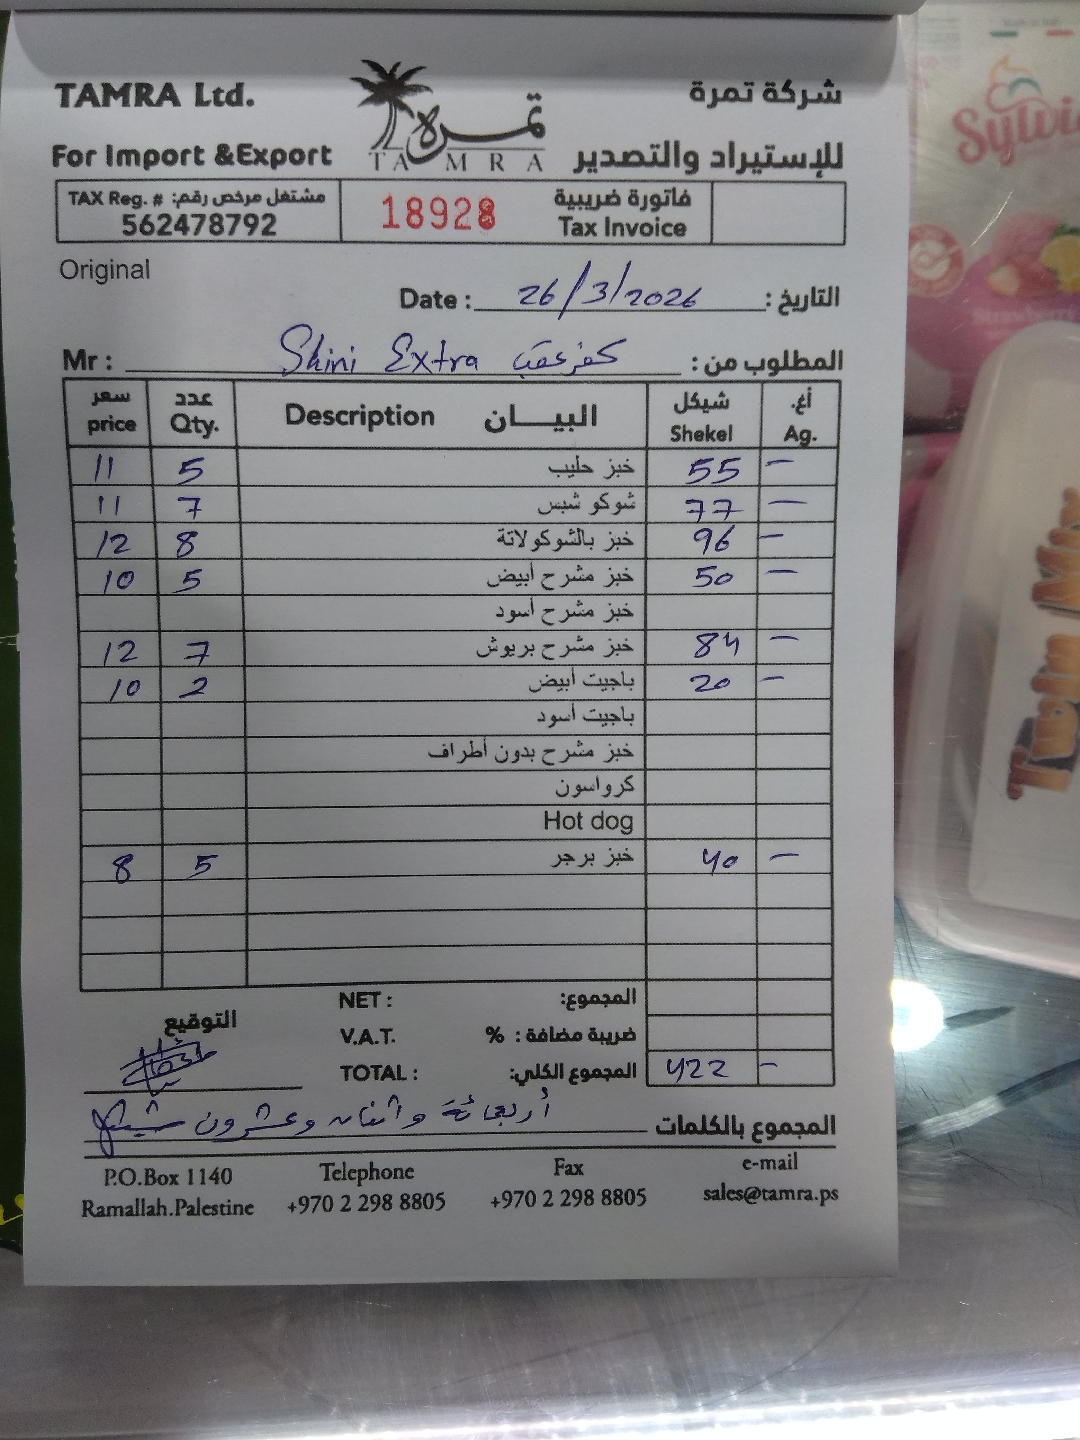 TAMRA Ltd. تمرة شركة تمرة
For Import &Export TAMRA للإستيراد والتصدير
TAX Reg. # مشتغل مرخص رقم: 18928 فاتورة ضريبية
562478792 Tax Invoice
Original
Date : 26/3/2026 التاريخ :
Mr : Shini Extra كفر عقب المطلوب من :
سعر عدد Description البيـــان شيكل أغ.
price Qty. Shekel Ag.
11 5 خبز حليب 55 –
11 7 شوكو شبس 77 –
12 8 خبز بالشوكولاتة 96 –
10 5 خبز مشرح أبيض 50 –
خبز مشرح أسود
12 7 خبز مشرح بريوش 84 –
10 2 باجيت أبيض 20 –
باجيت أسود
خبز مشرح بدون أطراف
كرواسون
Hot dog
8 5 خبز برجر 40 –
NET : المجموع:
التوقيع
V.A.T. % ضريبة مضافة :
TOTAL : المجموع الكلي: 422 –
المجموع بالكلمات أربعمائة واثنان وعشرون شيكل
P.O.Box 1140 Telephone Fax e-mail
Ramallah.Palestine +970 2 298 8805 +970 2 298 8805 sales@tamra.ps
Sylvia
Strawberry
Twin Mix